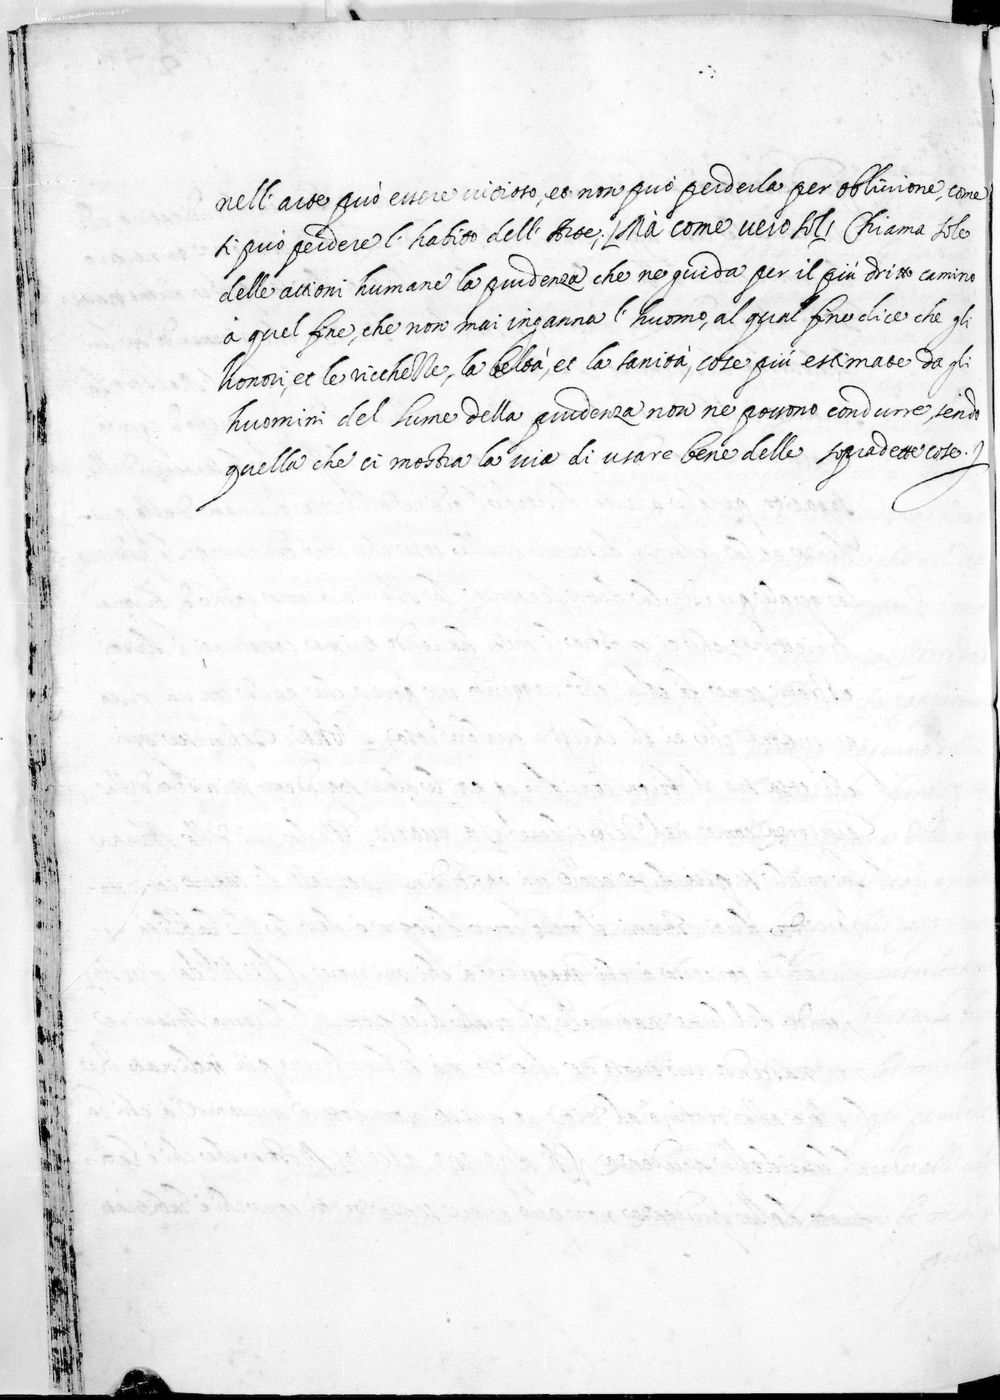 nell'arte può essere vitioso, et non può perderla per oblivione, come
si può perdere l'habito dell'Arte; [Mà come vero sol] Chiama sole
delle attioni humane la prudenza che ne guida per il più dritto camino
à quel fine, che non mai inganna l'huomo, al qual fine dice che gli
honori, et le ricchezze, la beltà, et la sanità, cose più estimate da gli
huomini del lume della prudenza non ne possono condurre, sendo
quella che ci mostra la via di usare bene delle sopradette cose.